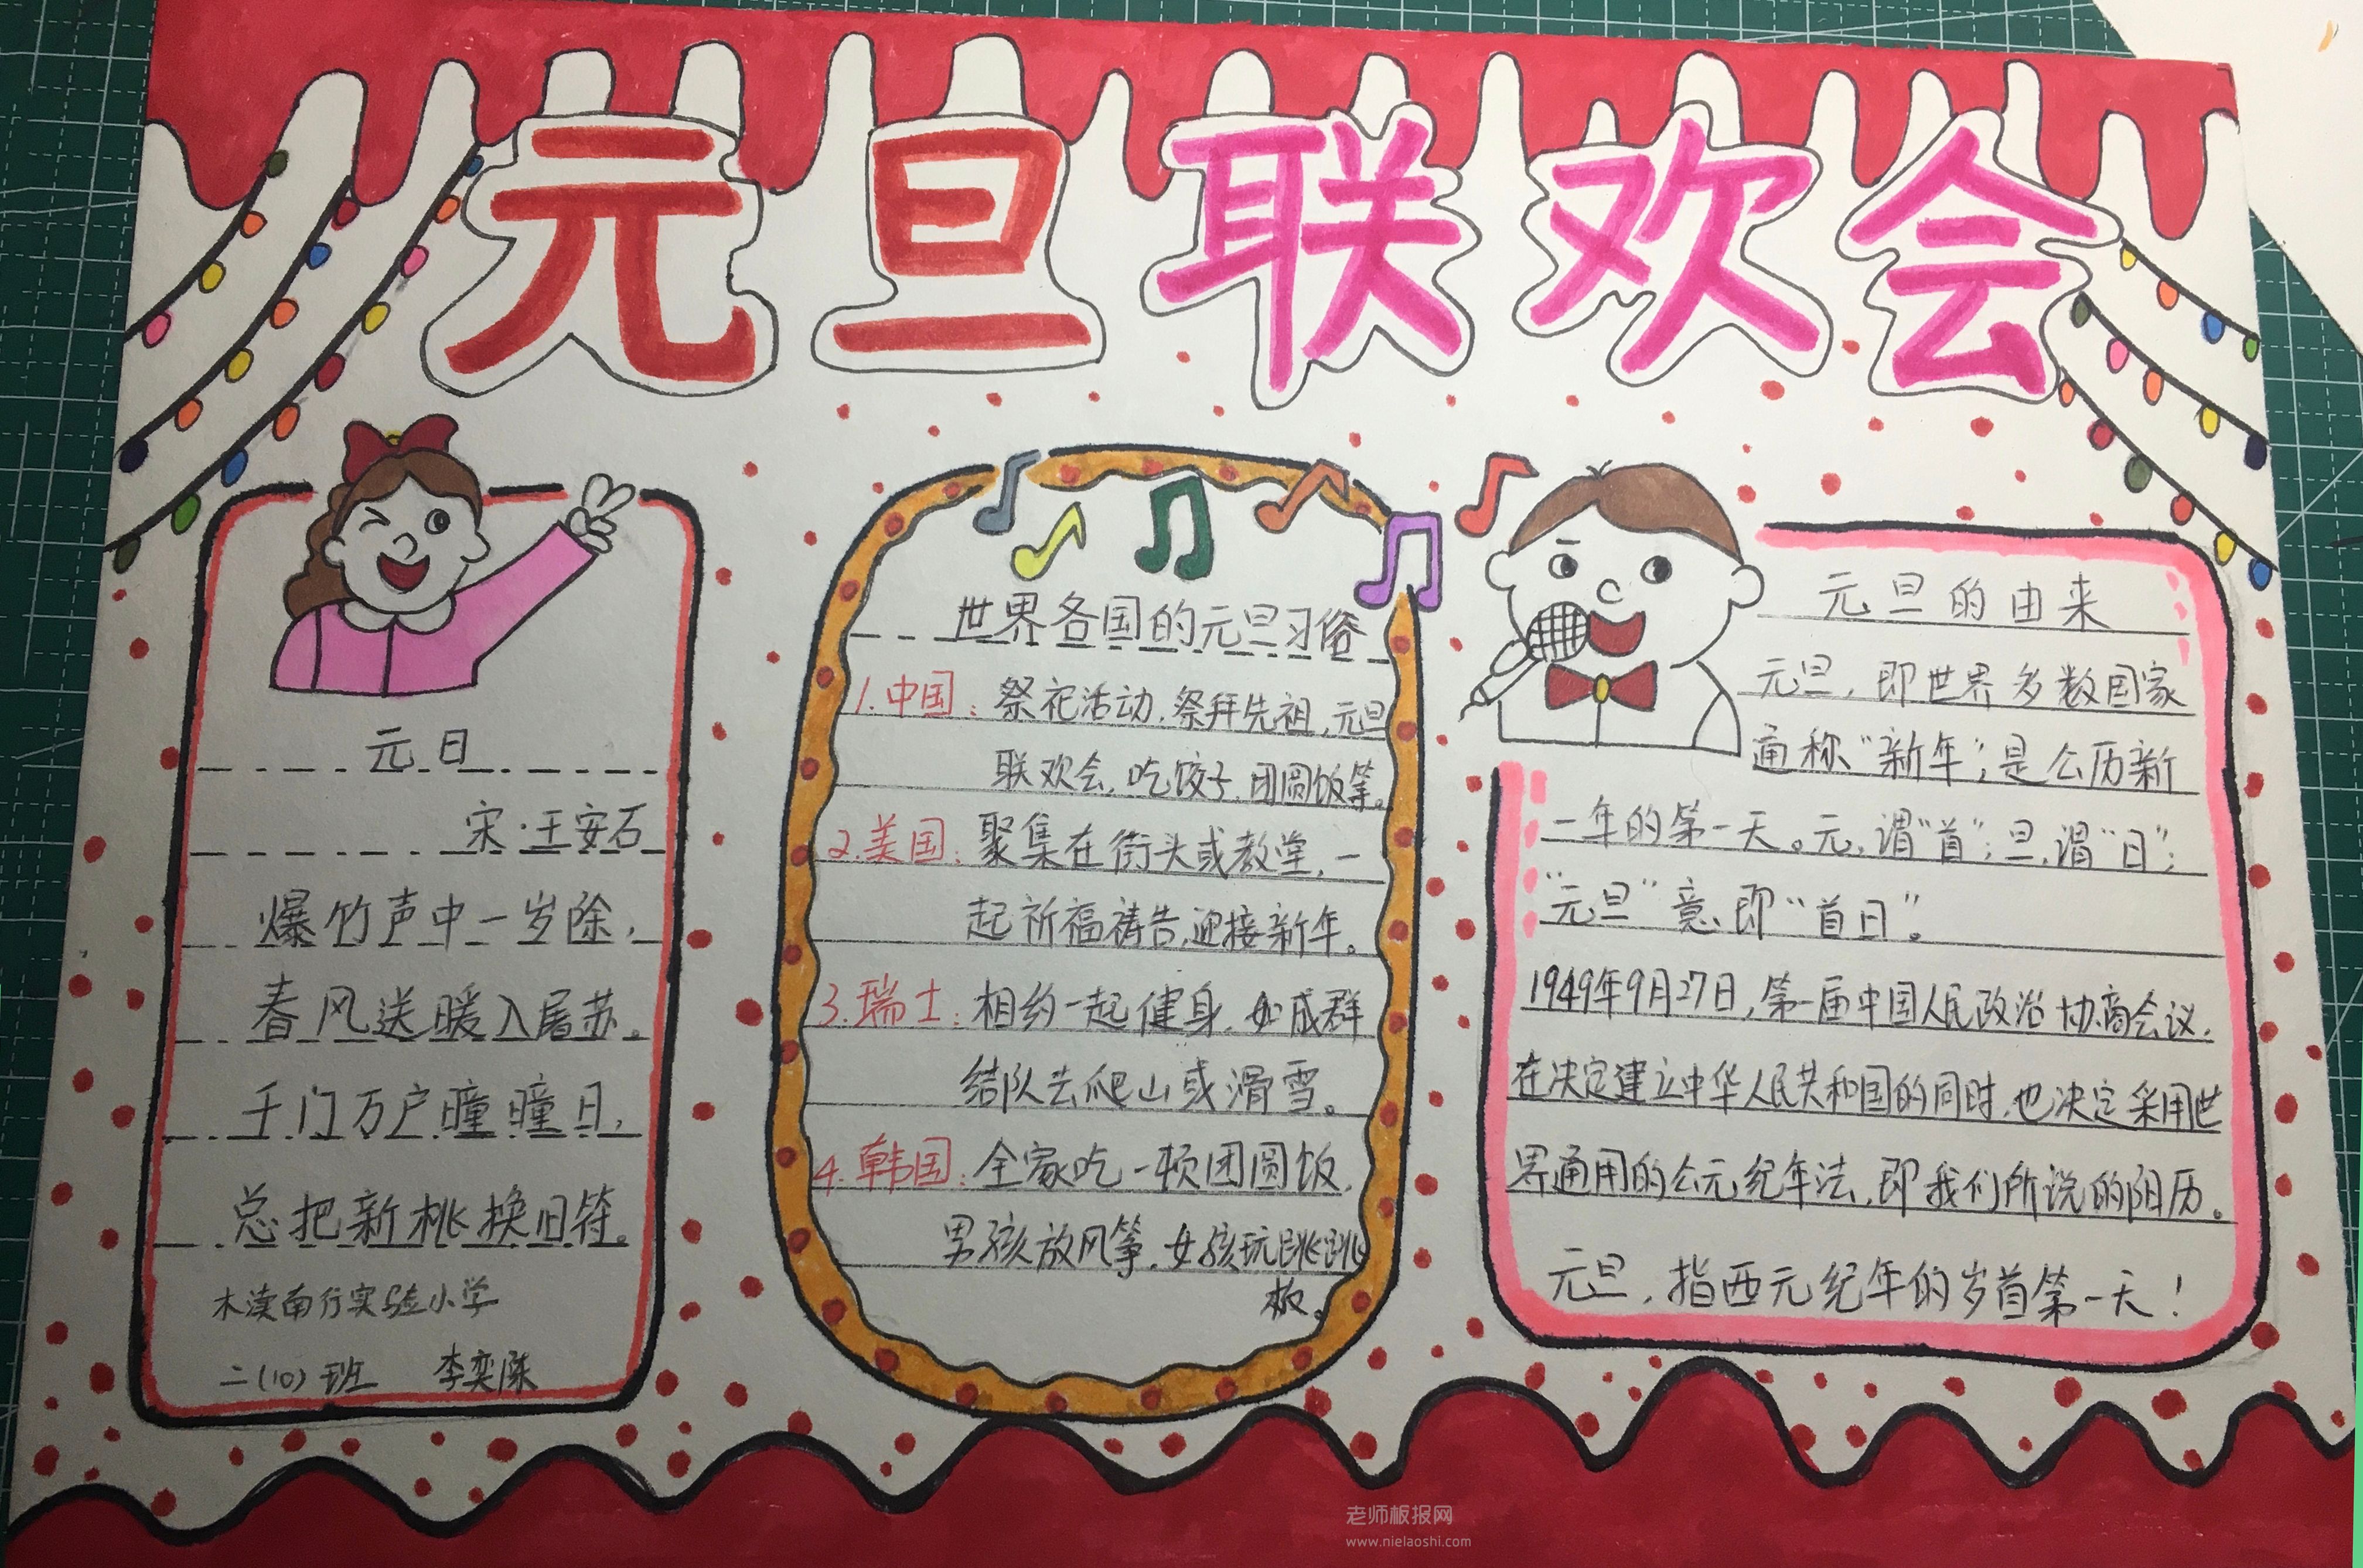 元旦联欢会
元日
宋·王安石
爆竹声中一岁除,
春风送暖入屠苏。
千门万户曈曈日,
总把新桃换旧符。
木渎南行实验小学
二(10)班 李奕
世界各国的元旦习俗
1.中国:祭祀活动,祭拜先祖,元旦
联欢会,吃饺子,团圆饭等。
2.美国:聚集在街头或教堂,一
起祈福祷告,迎接新年。
3.瑞士:相约一起健身,如成群
结队去爬山或滑雪。
4.韩国:全家吃一顿团圆饭,
男孩放风筝,女孩玩跳跳
板。
元旦的由来
元旦,即世界多数国家
通称“新年”,是公历新
一年的第一天。元,谓“首”;旦,谓“日”;
“元旦”意即“首日”。
1949年9月27日,第一届中国人民政治协商会议,
在决定建立中华人民共和国的同时,也决定采用世
界通用的公元纪年法,即我们所说的阳历。
元旦,指西元纪年的岁首第一天!
老师板报网
www.nielaoshi.com